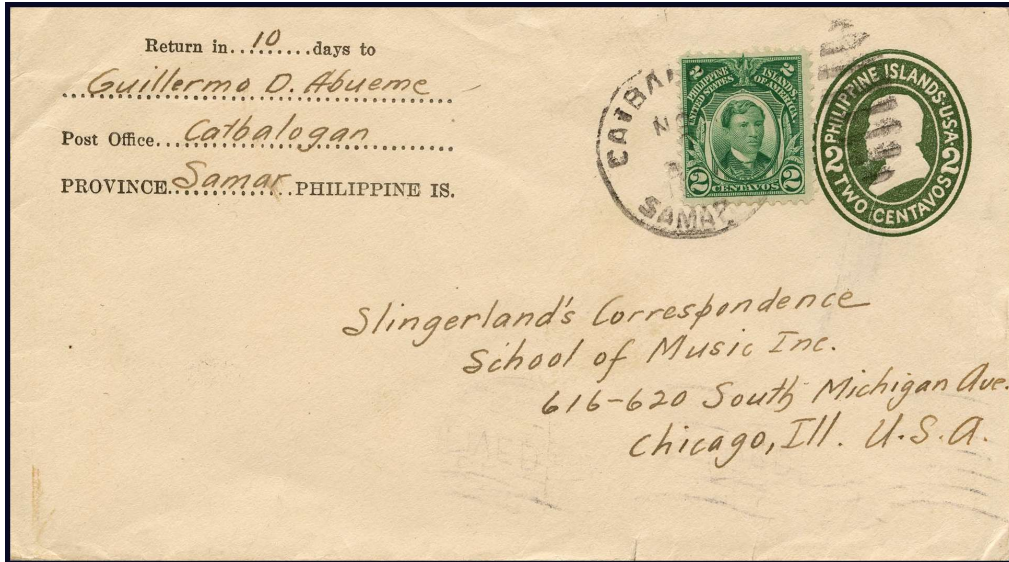 Return in 10 days to
Guillermo D. Abueme
Post Office Catbalogan
PROVINCE Samar PHILIPPINE IS.
2 2
PHILIPPINE ISLANDS
UNITED STATES OF AMERICA
2 CENTAVOS 2
SAMAR
PHILIPPINE ISLANDS·U·S·A·
2 TWO CENTAVOS 2
Slingerland's Correspondence
School of Music Inc.
616-620 South Michigan Ave.
Chicago, Ill. U.S.A.